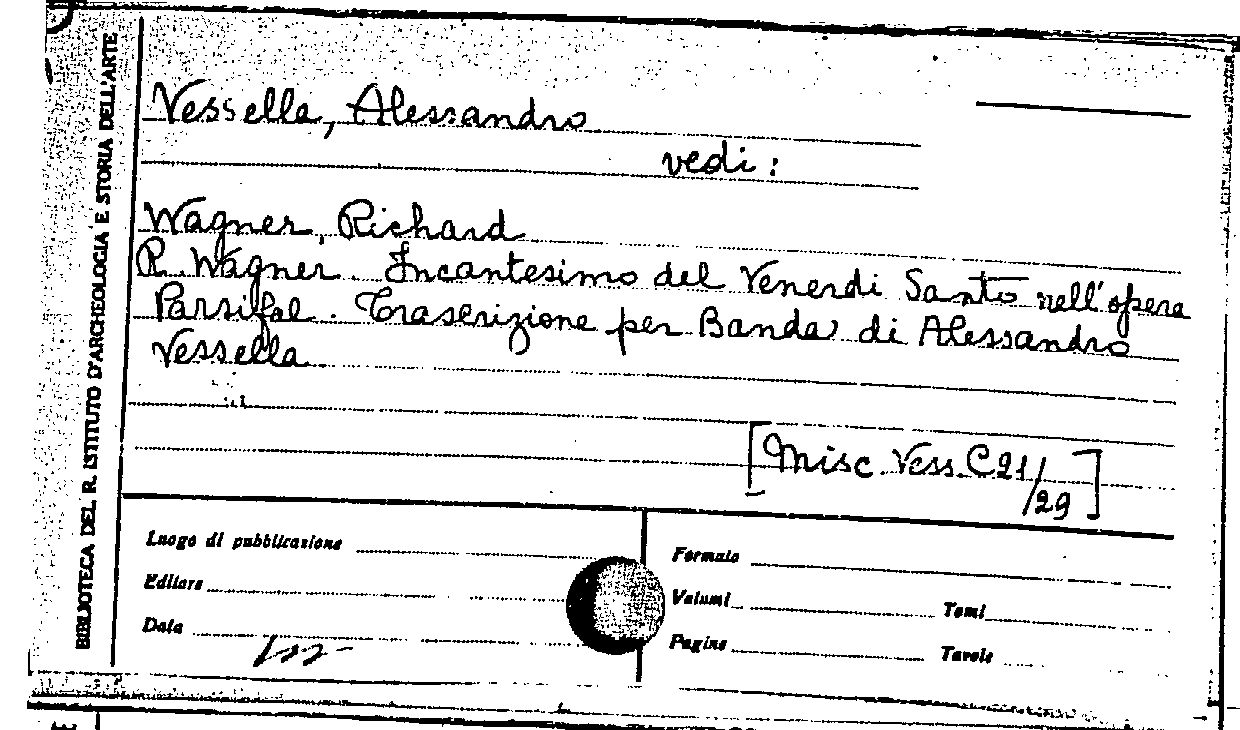 BIBLIOTECA DEL R. ISTITUTO D'ARCHEOLOGIA E STORIA DELL'ARTE
Vessella, Alessandro
vedi:
Wagner, Richard
R. Wagner. Incantesimo del Venerdi Santo nell'opera
Parsifal. Trascrizione per Banda di Alessandro
Vessella
[Misc. Vess. C 21/29]
Luogo di pubblicazione
Editore
Data
Formato
Volumi
Tomi
Pagine
Tavole